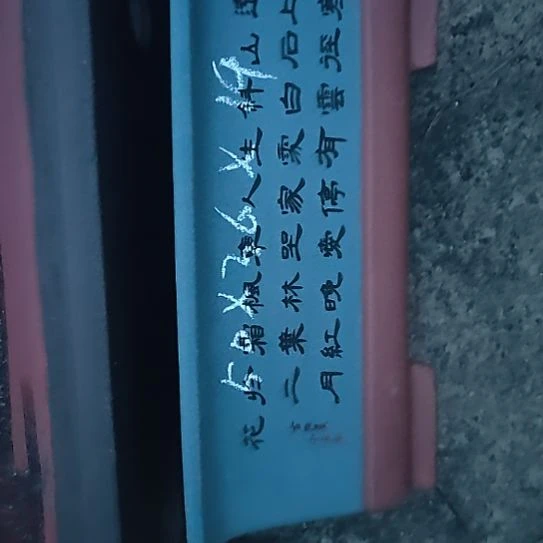 遠上寒
山石徑
斜白雲
生處有
人家停
車坐愛
楓林晚
霜葉紅
於二月
花
50X26X19